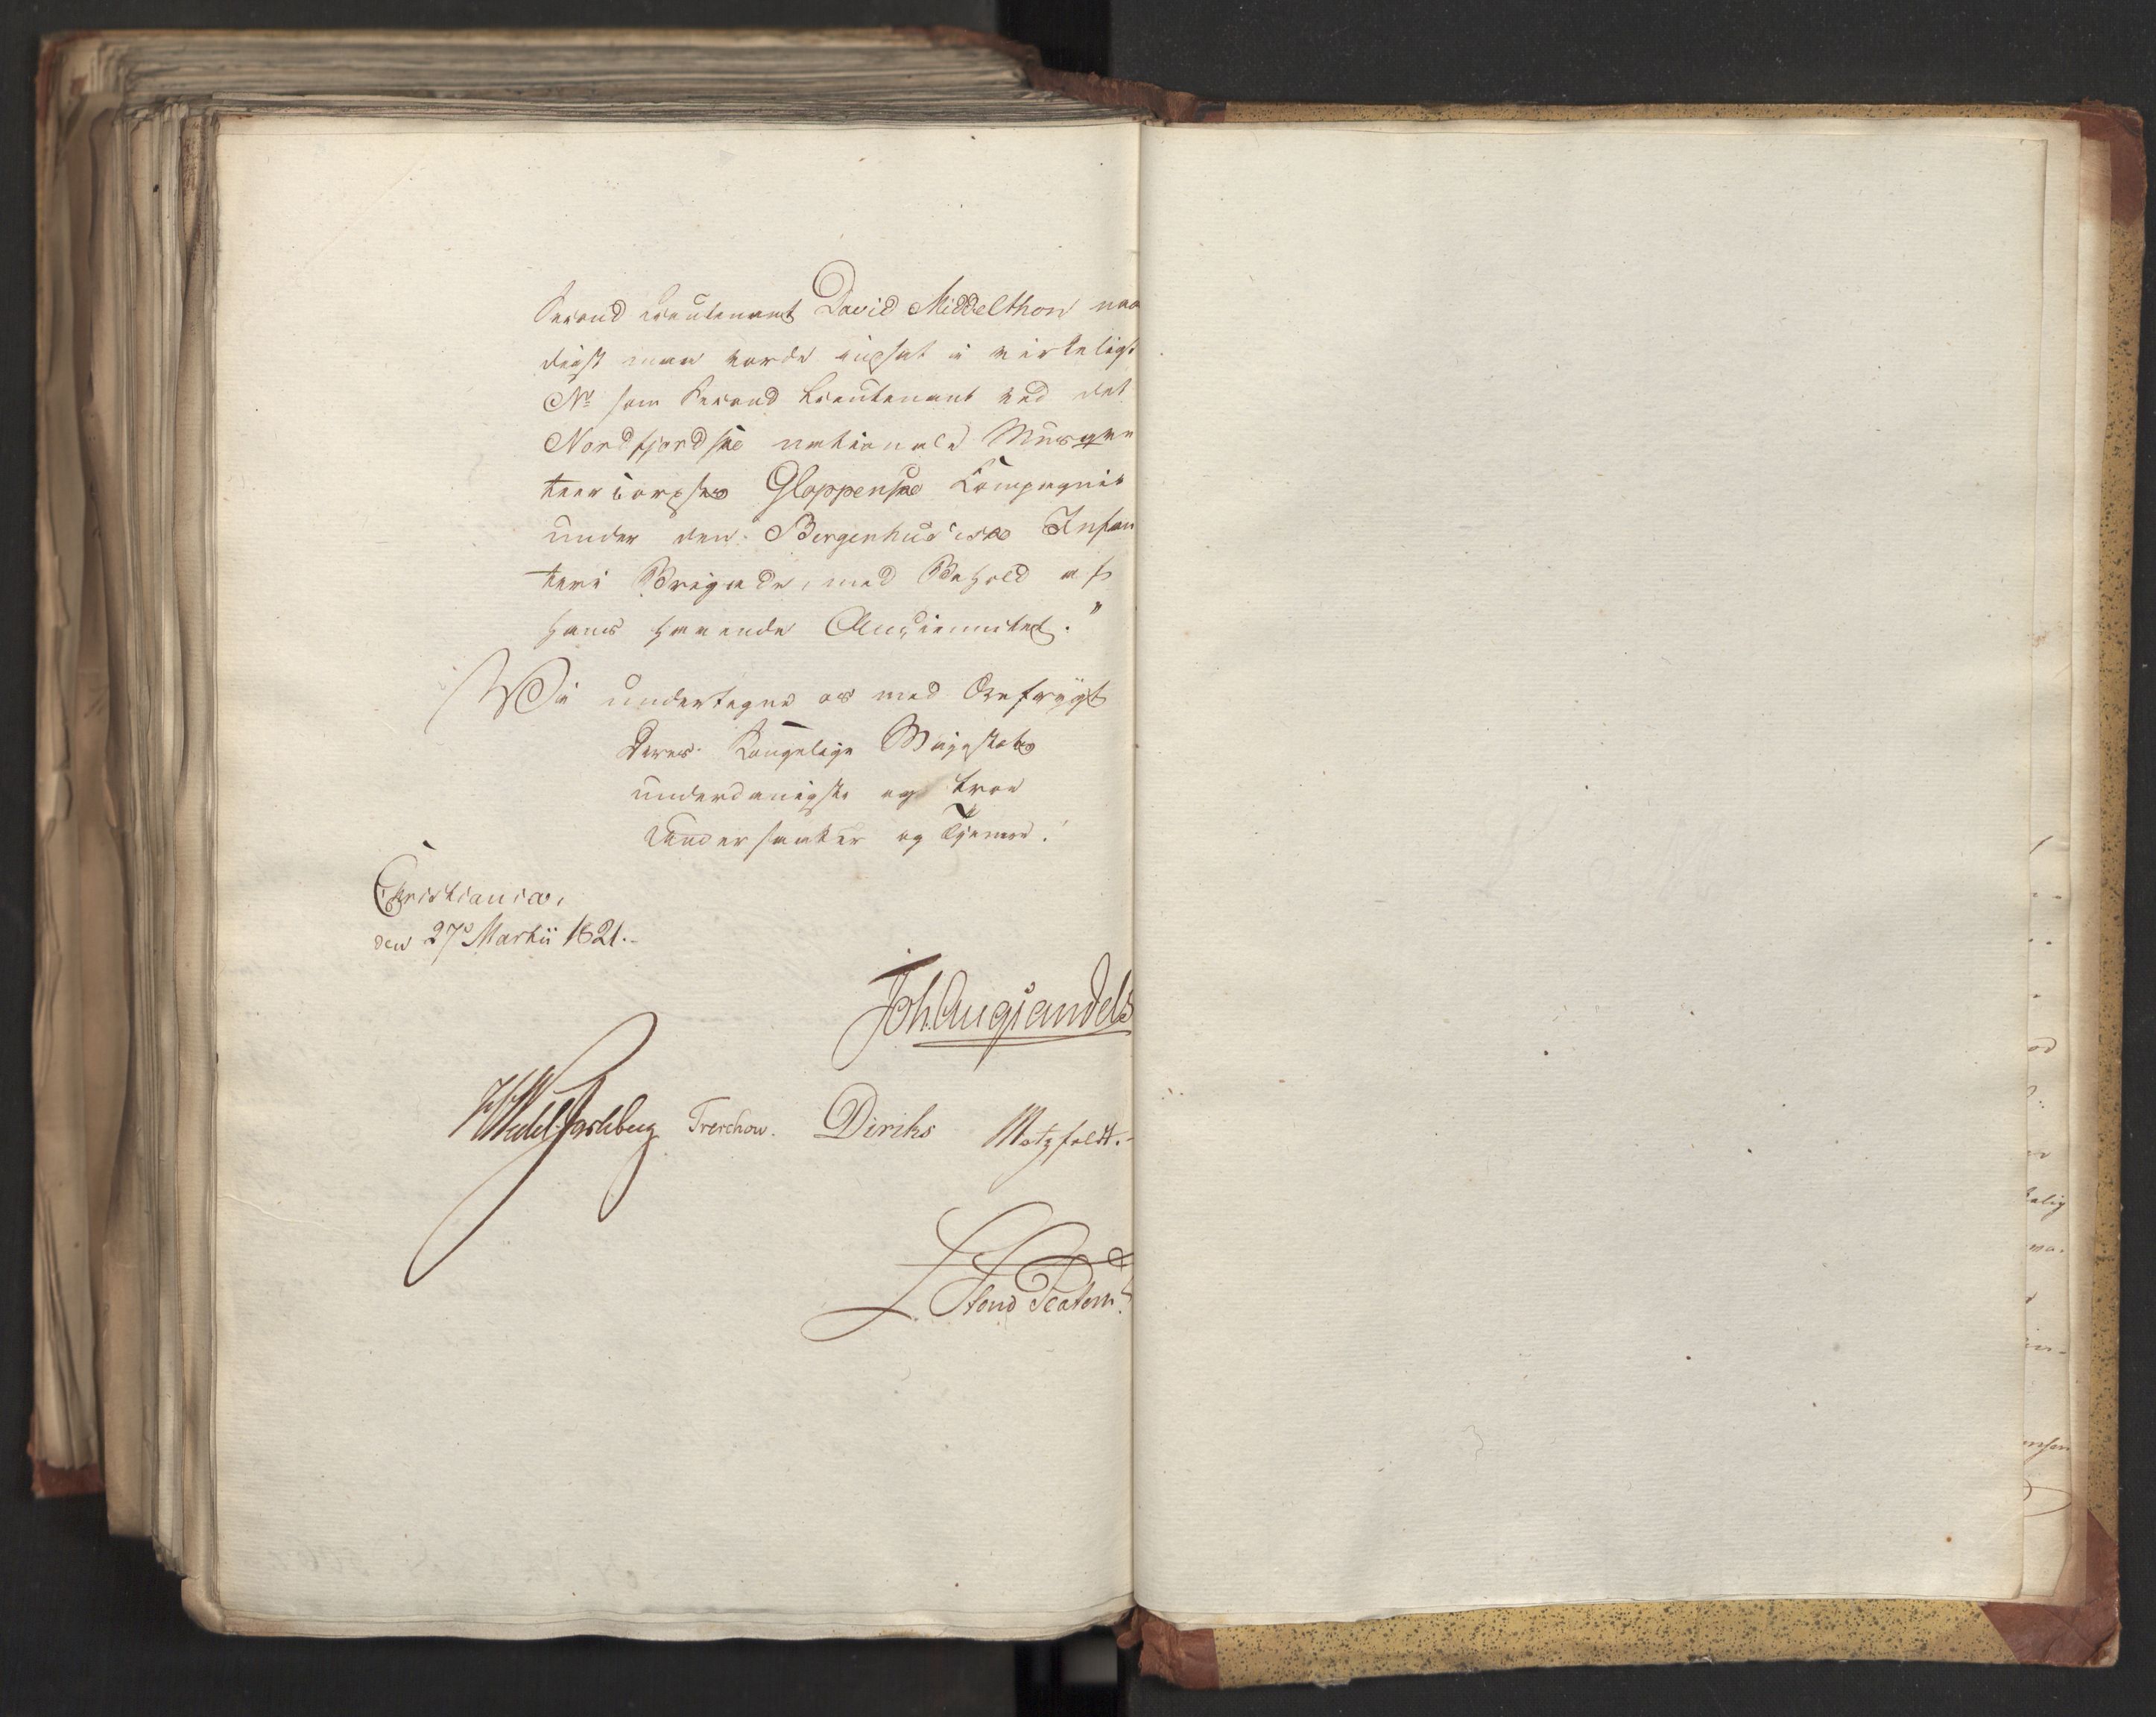 Second Lieutenant David Middelthon naa
digst maa vorde indsat i virkeligt
No som Second Lieutenant ved det
Nordfjordske nationale Musque
teercorpses Gloppenske Compagnie
under den Bergenhusiske Infan
teri Brigade, med Behold af
hans havende Anciennitet."
Vi undertegne os med Ærefrygt
Deres Kongelige Majestæts
underdanigste og troe
Undersaatter og Tjenere.
Christiania,
den 27de Martii 1821.
Joh. Aug. Sandels
HWedel Jarlsberg Treschow. Diriks Motzfeldt.